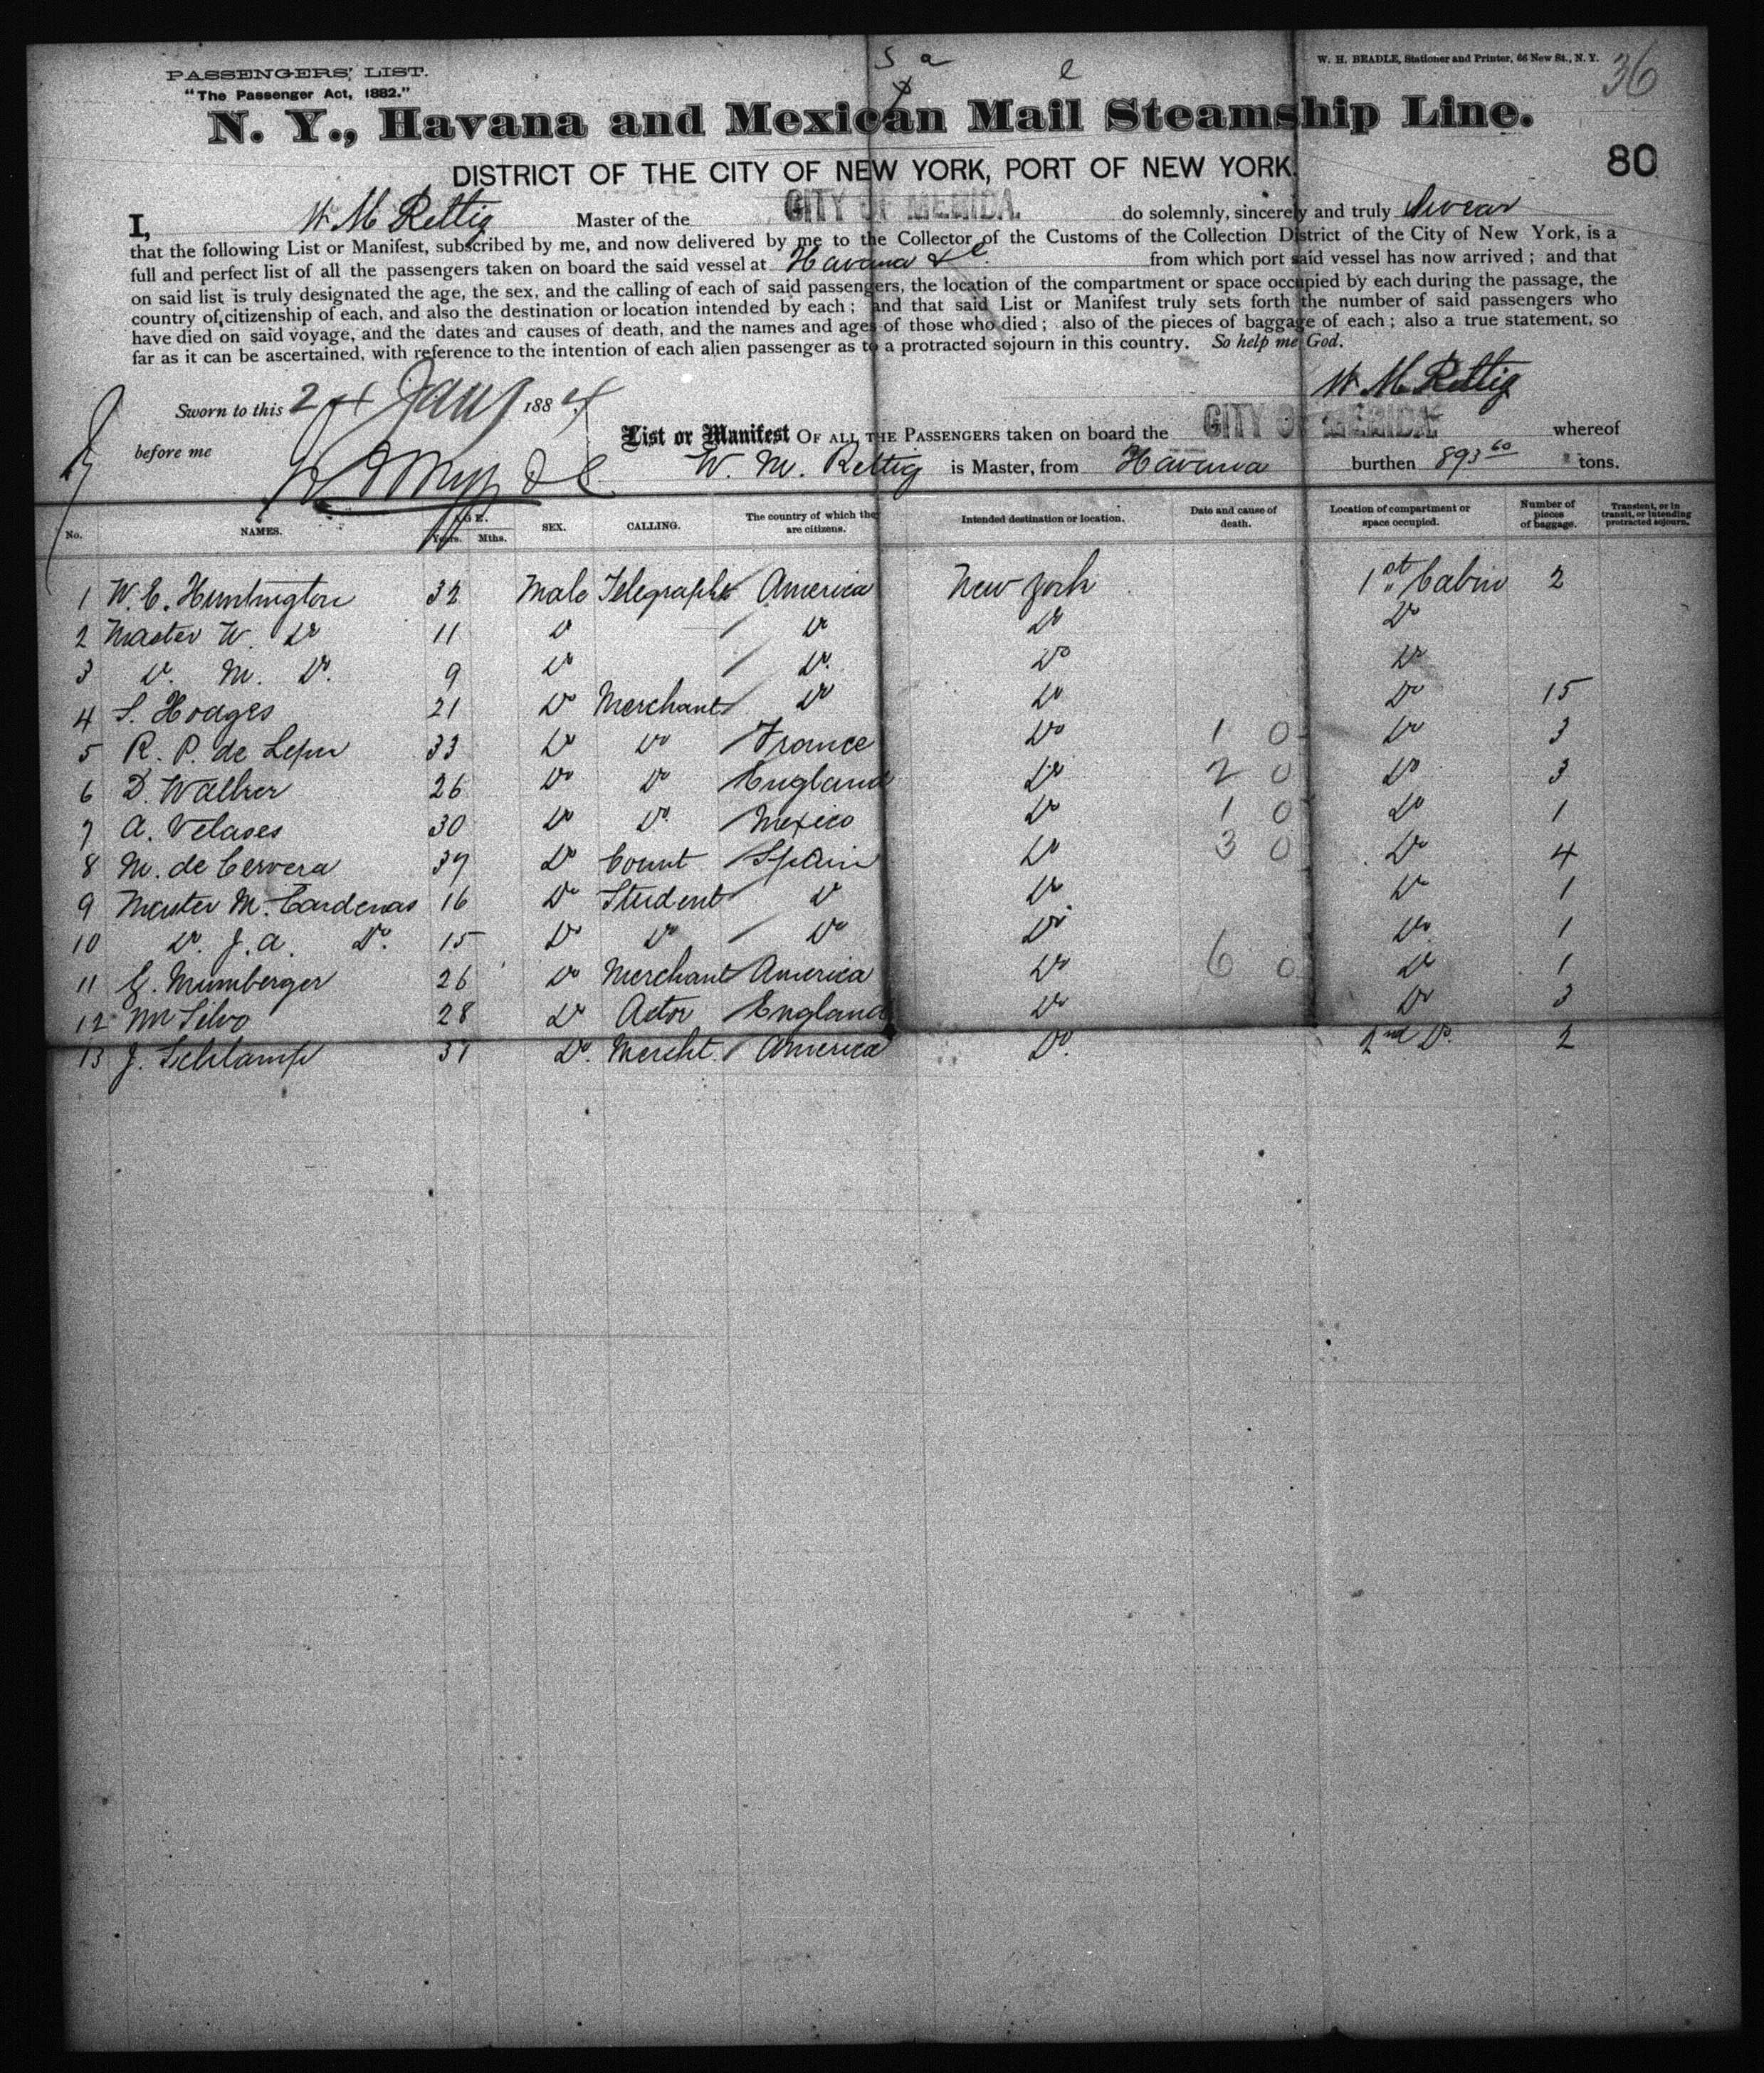 PASSENGERS' LIST.
"The Passenger Act, 1882."
W. H. BEADLE, Stationer and Printer, 66 New St., N. Y.
36
N. Y., Havana and Mexican Mail Steamship Line.
DISTRICT OF THE CITY OF NEW YORK, PORT OF NEW YORK.
80
I, W M Rettig Master of the CITY OF MERIDA do solemnly, sincerely and truly swear
that the following List or Manifest, subscribed by me, and now delivered by me to the Collector of the Customs of the Collection District of the City of New York, is a
full and perfect list of all the passengers taken on board the said vessel at Havana &c from which port said vessel has now arrived; and that
on said list is truly designated the age, the sex, and the calling of each of said passengers, the location of the compartment or space occupied by each during the passage, the
country of citizenship of each, and also the destination or location intended by each; and that said List or Manifest truly sets forth the number of said passengers who
have died on said voyage, and the dates and causes of death, and the names and ages of those who died; also of the pieces of baggage of each; also a true statement, so
far as it can be ascertained, with reference to the intention of each alien passenger as to a protracted sojourn in this country. So help me God.
W M Rettig
Sworn to this 24 Jany 1884
before me
List or Manifest OF ALL THE PASSENGERS taken on board the CITY OF MERIDA whereof
W. M. Rettig is Master, from Havana burthen 893 60 tons.
No. NAMES. AGE. Years. Mths. SEX. CALLING. The country of which they are citizens. Intended destination or location. Date and cause of death. Location of compartment or space occupied. Number of pieces of baggage. Transient, or in transit, or intending protracted sojourn.
1 W. E. Huntington 32 Male Telegraph America New York 1st Cabin 2
2 Master W. Do 11 Do Do Do Do
3 Do. M. Do. 9 Do Do. Do Do
4 S. Hodges 21 Do Merchant Do Do Do 15
5 R. P. de 33 Do Do France Do 1 0 Do 3
6 D. Walker 26 Do Do England Do 2 0 Do 3
7 A. Velases 30 Do Do. Mexico Do 1 0 Do 1
8 M. de Cervera 37 Do Count Spain Do 3 0 Do 4
9 Master M. Cardenas 16 Do Student Do Do Do 1
10 Do. J. A. Do. 15 Do Do Do Do Do. 1
11 Mumberger 26 Do Merchant America Do 6 0 Do 1
12 Mr Silvo 28 Do Actor England Do Do 3
13 J. Schlampp 31 Do. Mercht. America Do. 2nd Do. 2